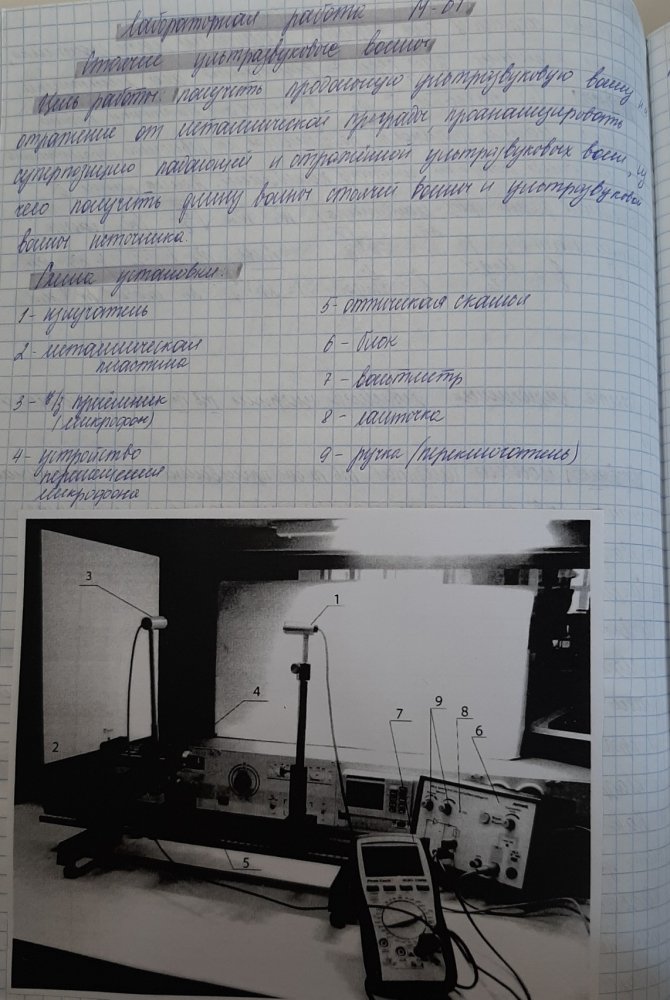 Лабораторная работа М-01
Стоячие ультразвуковые волны
Цель работы: получить продольную ультразвуковую волну и
отражение от металлической преграды, проанализировать
суперпозицию падающей и отражённой ультразвуковых волн, из
чего получить длину волны стоячей волны и ультразвуковой
волны источника.
Схема установки:
1 - излучатель
2 - металлическая
пластина
3 - у/з приёмник
(микрофон)
4 - устройство
перемещения
микрофона
5 - оптическая скамья
6 - блок
7 - вольтметр
8 - лампочка
9 - ручка (переключатель)
3
1
4
7
9
8
6
2
5